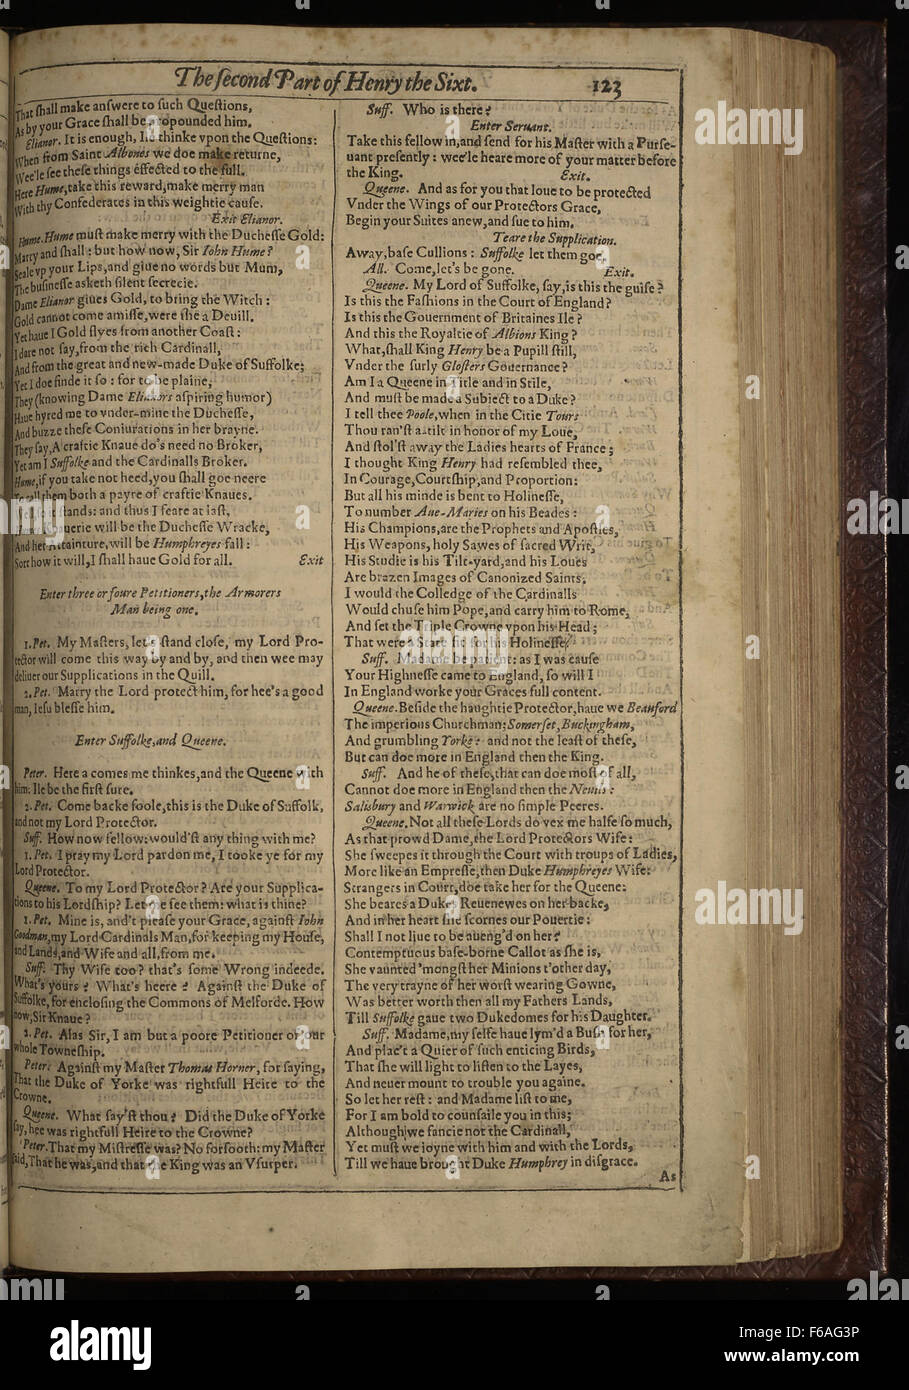 The second Part of Henry the Sixt. 123
That shall make answere to such Questions,
As by your Grace shall be propounded him.
Elianor. It is enough, Ile thinke vpon the Questions:
When from Saint Albones we doe make returne,
Wee'le see these things effected to the full.
Here Hume, take this reward, make merry man
With thy Confederates in this weightie cause.
Exit Elianor.
Hume. Hume must make merry with the Duchesse Gold:
Marry and shall: but how now, Sir Iohn Hume?
Seale vp your Lips, and giue no words but Mum,
The businesse asketh silent secrecie.
Dame Elianor giues Gold, to bring the Witch:
Gold cannot come amisse, were she a Deuill.
Yet haue I Gold flyes from another Coast:
I dare not say, from the rich Cardinall,
And from the great and new-made Duke of Suffolke;
Yet I doe finde it so: for to be plaine,
They (knowing Dame Elianors aspiring humor)
Haue hyred me to vnder-mine the Duchesse,
And buzze these Coniurations in her brayne.
They say, A craftie Knaue do's need no Broker,
Yet am I Suffolke and the Cardinalls Broker.
Hume, if you take not heed, you shall goe neere
To call them both a payre of craftie Knaues.
Well, so it stands: and thus I feare at last,
Humes Knauerie will be the Duchesse Wracke,
And her Attainture, will be Humphreyes fall:
Sort how it will, I shall haue Gold for all. Exit
Enter three or foure Petitioners, the Armorers
Man being one.
1. Pet. My Masters, let's stand close, my Lord Pro-
tector will come this way by and by, and then wee may
deliuer our Supplications in the Quill.
2. Pet. Marry the Lord protect him, for hee's a good
man, Iesu blesse him.
Enter Suffolke, and Queene.
Peter. Here a comes me thinkes, and the Queene with
him: Ile be the first sure.
2. Pet. Come backe foole, this is the Duke of Suffolk,
and not my Lord Protector.
Suff. How now fellow: would'st any thing with me?
1. Pet. I pray my Lord pardon me, I tooke ye for my
Lord Protector.
Queene. To my Lord Protector? Are your Supplica-
tions to his Lordship? Let me see them: what is thine?
1. Pet. Mine is, and't please your Grace, against Iohn
Goodman, my Lord Cardinals Man, for keeping my House,
and Lands, and Wife and all, from me.
Suff. Thy Wife too? that's some Wrong indeede.
What's yours? What's heere? Against the Duke of
Suffolke, for enclosing the Commons of Melforde. How
now, Sir Knaue?
2. Pet. Alas Sir, I am but a poore Petitioner of our
whole Towneship.
Peter. Against my Master Thomas Horner, for saying,
That the Duke of Yorke was rightfull Heire to the
Crowne.
Queene. What say'st thou? Did the Duke of Yorke
say, hee was rightfull Heire to the Crowne?
Peter. That my Mistresse was? No forsooth: my Master
said, That he was, and that the King was an Vsurper.
Suff. Who is there?
Enter Seruant.
Take this fellow in, and send for his Master with a Purse-
uant presently: wee'le heare more of your matter before
the King. Exit.
Queene. And as for you that loue to be protected
Vnder the Wings of our Protectors Grace,
Begin your Suites anew, and sue to him.
Teare the Supplication.
Away, base Cullions: Suffolke let them goe.
All. Come, let's be gone. Exit.
Queene. My Lord of Suffolke, say, is this the guise?
Is this the Fashions in the Court of England?
Is this the Gouernment of Britaines Ile?
And this the Royaltie of Albions King?
What, shall King Henry be a Pupill still,
Vnder the surly Glosters Gouernance?
Am I a Queene in Title and in Stile,
And must be made a Subiect to a Duke?
I tell thee Poole, when in the Citie Tours
Thou ran'st a-tilt in honor of my Loue,
And stol'st away the Ladies hearts of France;
I thought King Henry had resembled thee,
In Courage, Courtship, and Proportion:
But all his minde is bent to Holinesse,
To number Aue-Maries on his Beades:
His Champions, are the Prophets and Apostles,
His Weapons, holy Sawes of sacred Writ,
His Studie is his Tilt-yard, and his Loues
Are brazen Images of Canonized Saints.
I would the Colledge of the Cardinalls
Would chuse him Pope, and carry him to Rome,
And set the Triple Crowne vpon his Head;
That were a State fit for his Holinesse.
Suff. Madame be patient: as I was cause
Your Highnesse came to England, so will I
In England worke your Graces full content.
Queene. Beside the haughtie Protector, haue we Beauford
The imperious Churchman; Somerset, Buckingham,
And grumbling Yorke: and not the least of these,
But can doe more in England then the King.
Suff. And he of these, that can doe most of all,
Cannot doe more in England then the Neuils:
Salisbury and Warwick are no simple Peeres.
Queene. Not all these Lords do vex me halfe so much,
As that prowd Dame, the Lord Protectors Wife:
She sweepes it through the Court with troups of Ladies,
More like an Empresse, then Duke Humphreyes Wife:
Strangers in Court, doe take her for the Queene:
She beares a Dukes Reuenewes on her backe,
And in her heart she scornes our Pouertie:
Shall I not liue to be aueng'd on her?
Contemptuous base-borne Callot as she is,
She vaunted 'mongst her Minions t'other day,
The very trayne of her worst wearing Gowne,
Was better worth then all my Fathers Lands,
Till Suffolke gaue two Dukedomes for his Daughter.
Suff. Madame, my selfe haue lym'd a Bush for her,
And plac't a Quier of such enticing Birds,
That she will light to listen to the Layes,
And neuer mount to trouble you againe.
So let her rest: and Madame list to me,
For I am bold to counsaile you in this;
Although we fancie not the Cardinall,
Yet must we ioyne with him and with the Lords,
Till we haue brought Duke Humphrey in disgrace.
As
alamy stock photo
F6AG3P
www.alamy.com